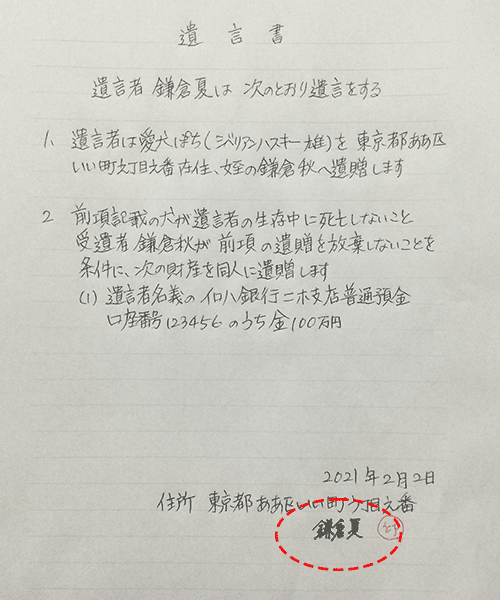 遺言書
遺言者 鎌倉夏は 次のとおり遺言をする
1、遺言者は愛犬ぽち(シベリアンハスキー雄)を 東京都ああ区
いい町え丁目え番在住、姪の鎌倉秋へ遺贈します
2 前項記載の犬が遺言者の生存中に死亡しないこと
受遺者 鎌倉秋が 前項の遺贈を放棄しないことを
条件に、次の財産を同人に遺贈します
(1) 遺言者名義のイロハ銀行ニホ支店普通預金
口座番号123456のうち金100万円
2021年2月2日
住所 東京都ああ区いい町う丁目え番
鎌倉夏